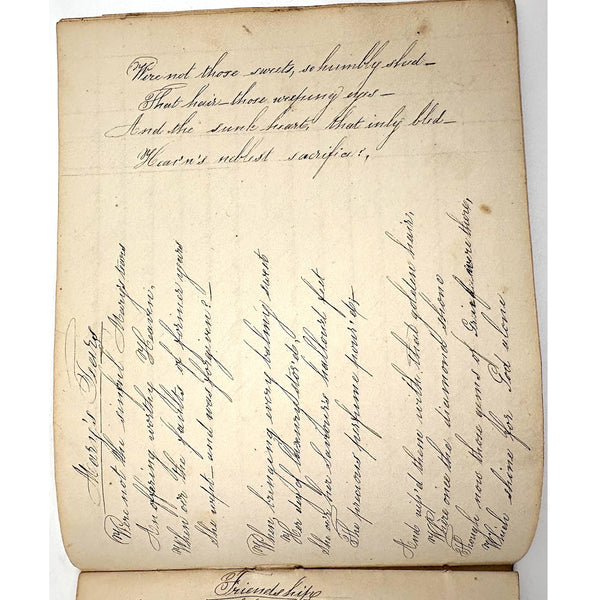 Mary's Tears
Were not the sinful Marys tears
An offering worthy Heaven,
When oer the faults of former years
She wept and was forgiven?—
When bringing every balmy sweet
Her day of luxury stor'd,
She oer her saviour's hallow'd feet
The precious perfume pour'd—
And wip'd them with that golden hair,
Where once the diamond shone
Though now those gems of Grief were there,
Which shine for God alone
Were not those sweets, so humbly shed—
That hair—those weeping eyes—
And the sunk heart, that inly bled—
Heav'n's noblest sacrifice?,
Friendship